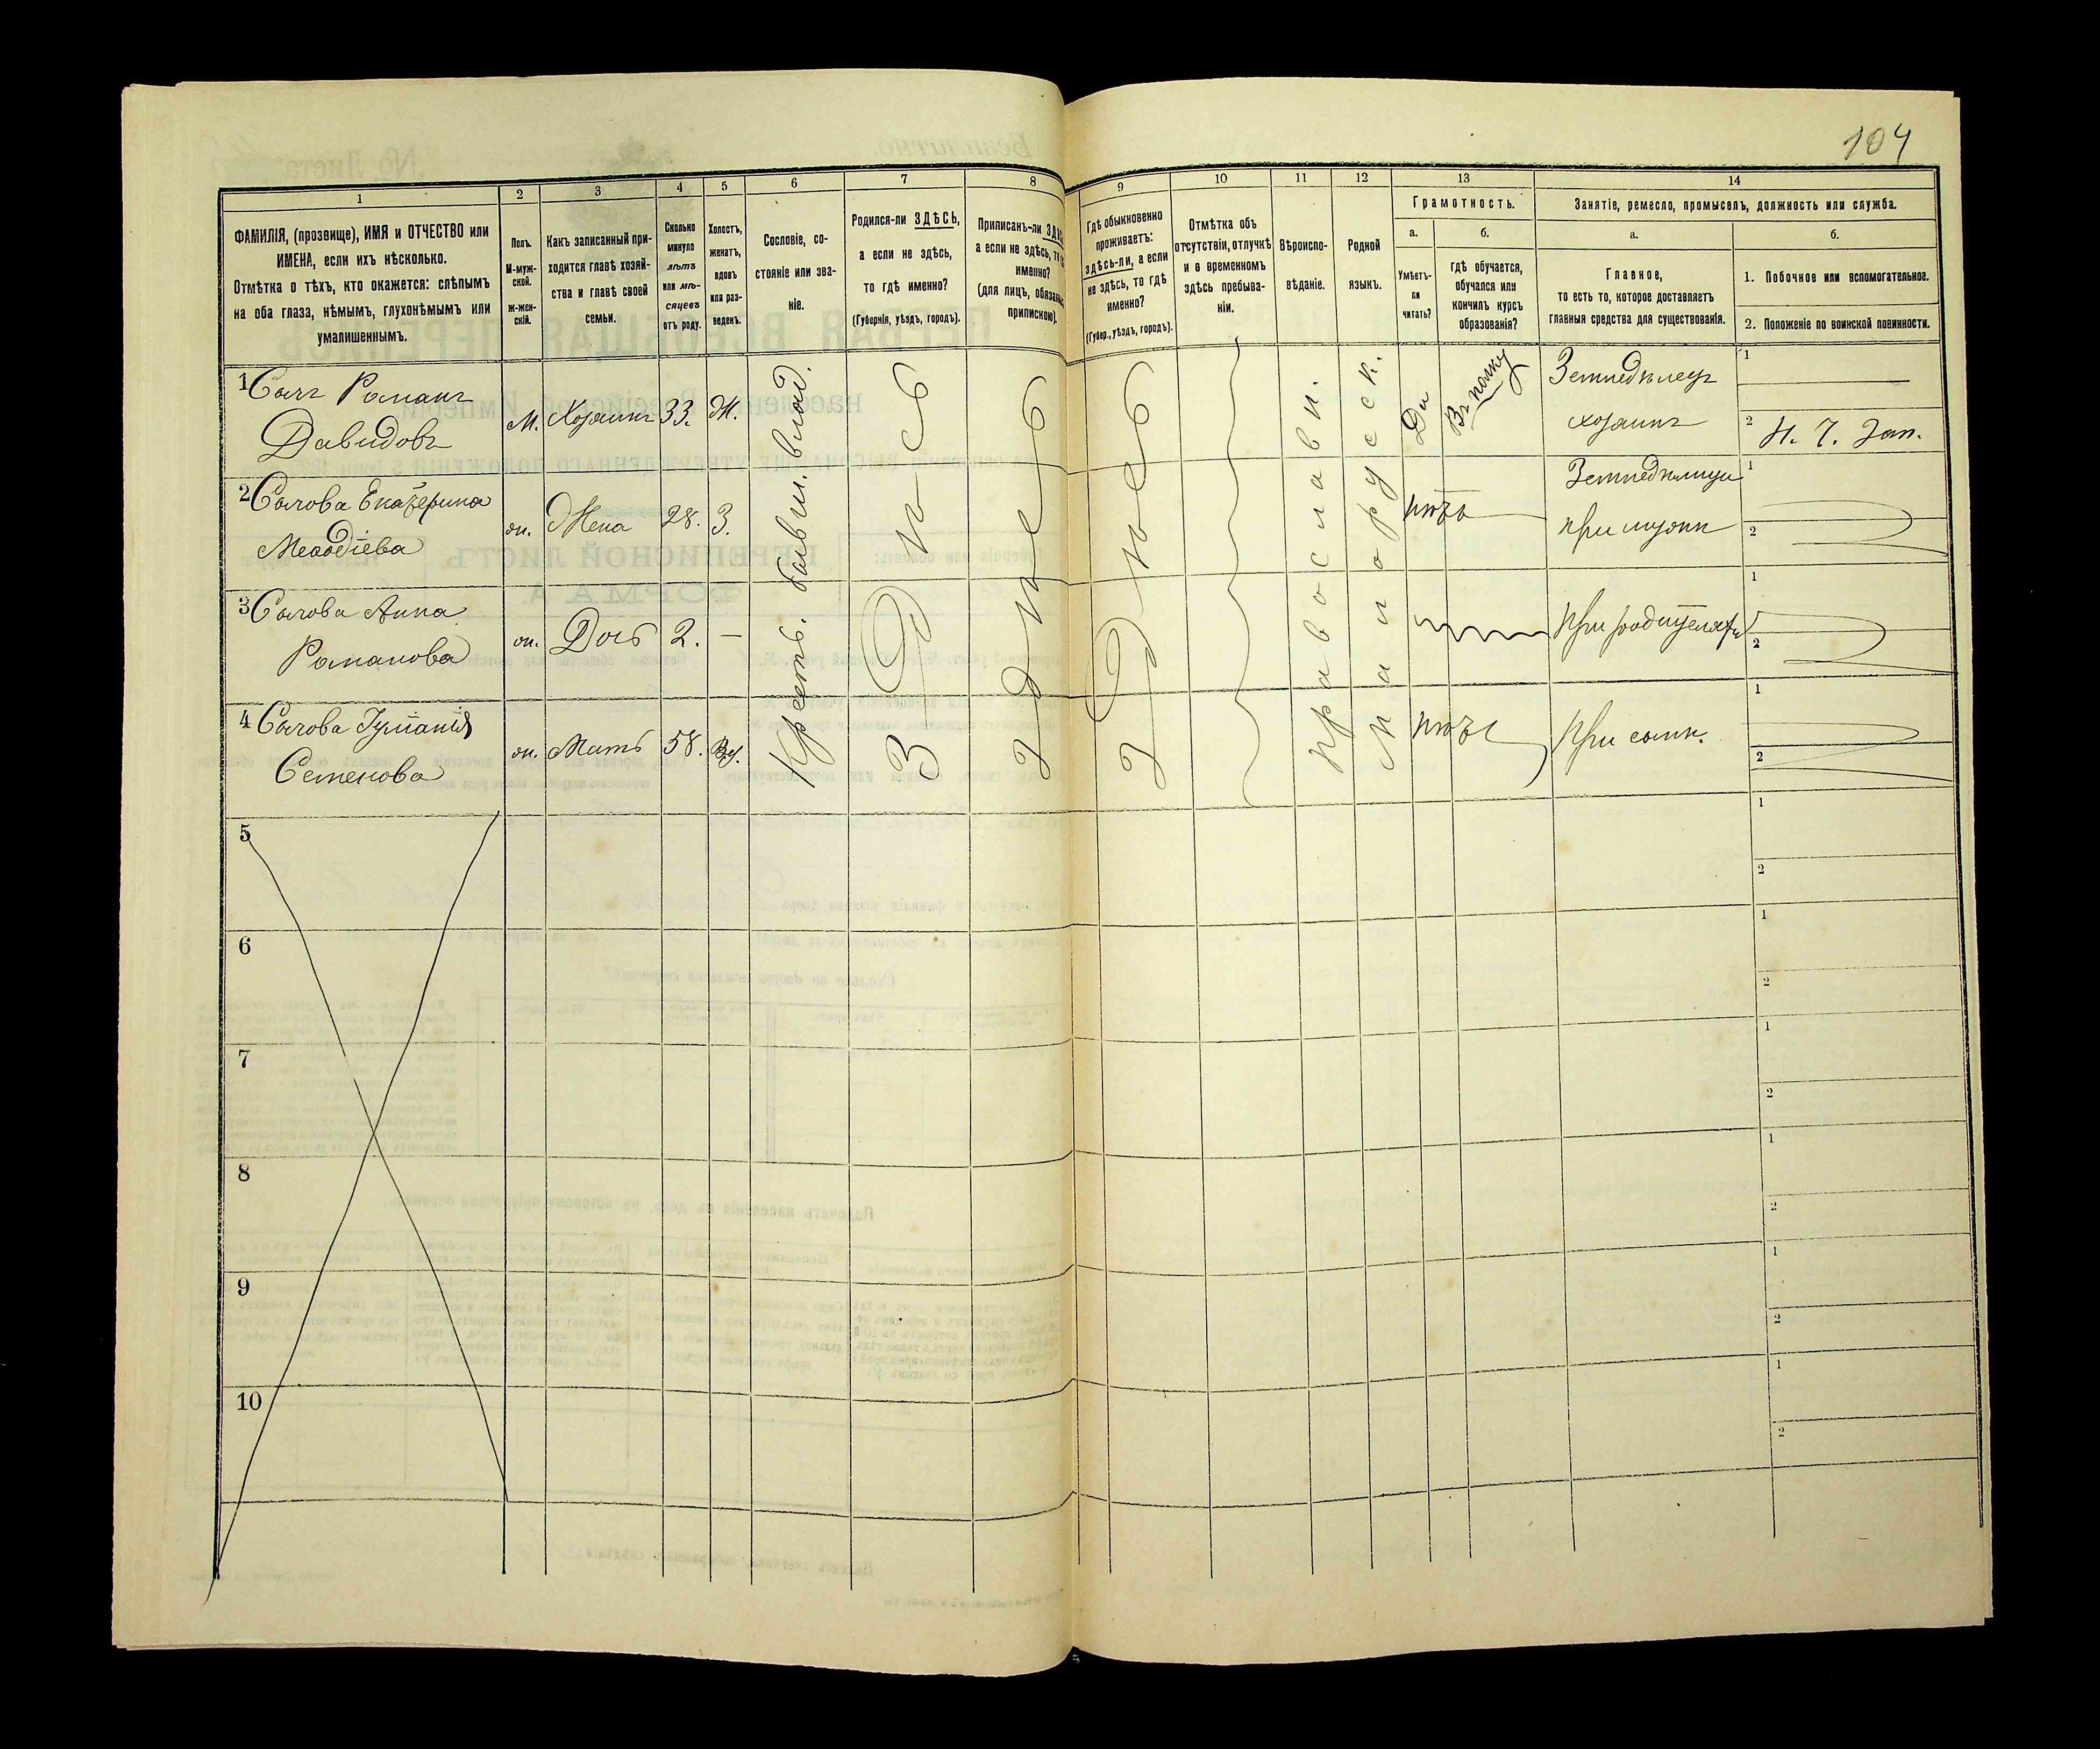 104
1
2
3
4
5
6
7
8
9
10
11
12
13
14
ФАМИЛІЯ, (прозвище), ИМЯ и ОТЧЕСТВО или
ИМЕНА, если ихъ нѣсколько.
Отмѣтка о тѣхъ, кто окажется: слѣпымъ
на оба глаза, нѣмымъ, глухонѣмымъ или
умалишеннымъ.
Полъ.
М-муж-
ской.
Ж-жен-
скій.
Какъ записанный при-
ходится главѣ хозяй-
ства и главѣ своей
семьи.
Сколько
минуло
лѣтъ
или мѣ-
сяцевъ
отъ роду.
Холостъ,
женатъ,
вдовъ
или раз-
веденъ.
Сословіе, со-
стояніе или зва-
ніе.
Родился-ли ЗДѢСЬ,
а если не здѣсь,
то гдѣ именно?
(Губернія, уѣздъ, городъ).
Приписанъ-ли
а если не здѣсь,
именно?
(для лицъ,
припискою).
Гдѣ обыкновенно
проживаетъ:
здѣсь-ли, а если
не здѣсь, то гдѣ
именно?
(Губер., уѣздъ, городъ).
Отмѣтка объ
отсутствіи, отлучкѣ
и о временномъ
здѣсь пребыва-
ніи.
Вѣроиспо-
вѣданіе.
Родной
языкъ.
Грамотность.
а.
Умѣетъ-
ли
читать?
б.
гдѣ обучается,
обучался или
кончилъ курсъ
образованія?
Занятіе, ремесло, промыселъ, должность или служба.
а.
Главное,
то есть то, которое доставляетъ
главныя средства для существованія.
б.
1. Побочное или вспомогательное.
2. Положеніе по воинской повинности.
1 Романъ
Давидовъ
М. Хозяинъ 33. Ж.
Да
Въ полку
Земледѣлец
хозяинъ
1
2 Зап.
2 Екатерина
Меѳодіева
ж. Жена 28. З.
нѣтъ
при мужѣ
1
2
3 Анна
Романова
ж. Дочь 2. —
при родителяхъ
1
2
4
Семенова
ж. Мать 58. Вд.
нѣтъ
При сынѣ.
1
2
Крест. бывш. влад.
Здѣсь
здѣсь
здѣсь
православн.
малорусск.
5
1
2
6
1
2
7
1
2
8
1
2
9
1
2
10
1
2